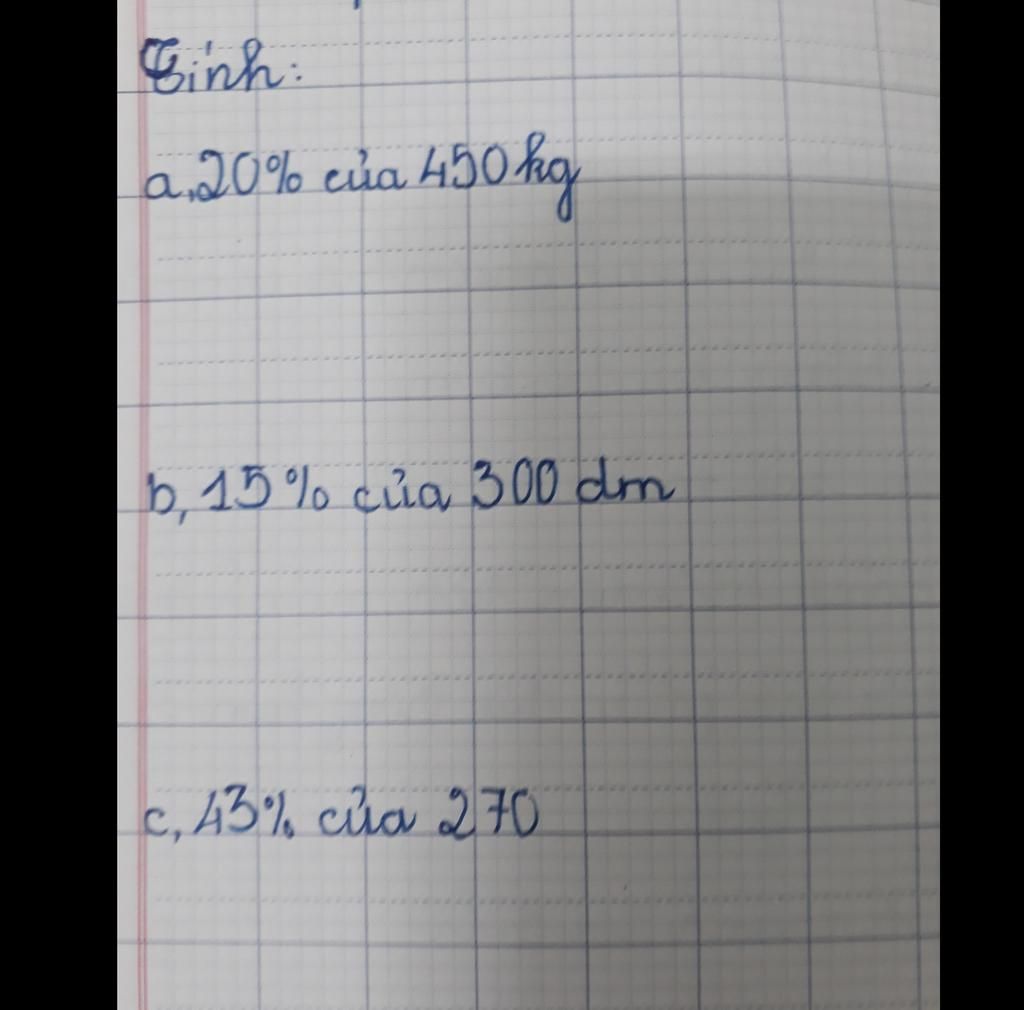 Tính:
a, 20% của 450 kg
b, 15% của 300 dm
c, 43% của 270